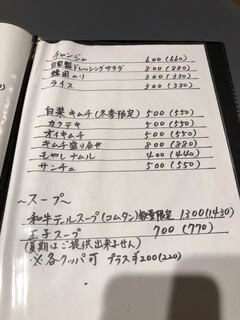 チャンジャ 600 (660)
自家製ドレッシングサラダ 800 (880)
韓国のり 300 (330)
ライス 300 (330)
白菜キムチ (冬季限定) 500 (550)
カクテキ 500 (550)
オイキムチ 500 (550)
キムチ盛り合せ 800 (880)
もやしナムル 400 (440)
サンチュ 500 (550)
～スープ～
和牛テールスープ (コムタン) 数量限定 1300 (1430)
玉子スープ 700 (770)
(夏期はご提供出来ません)
※各クッパ可 プラス¥200 (220)